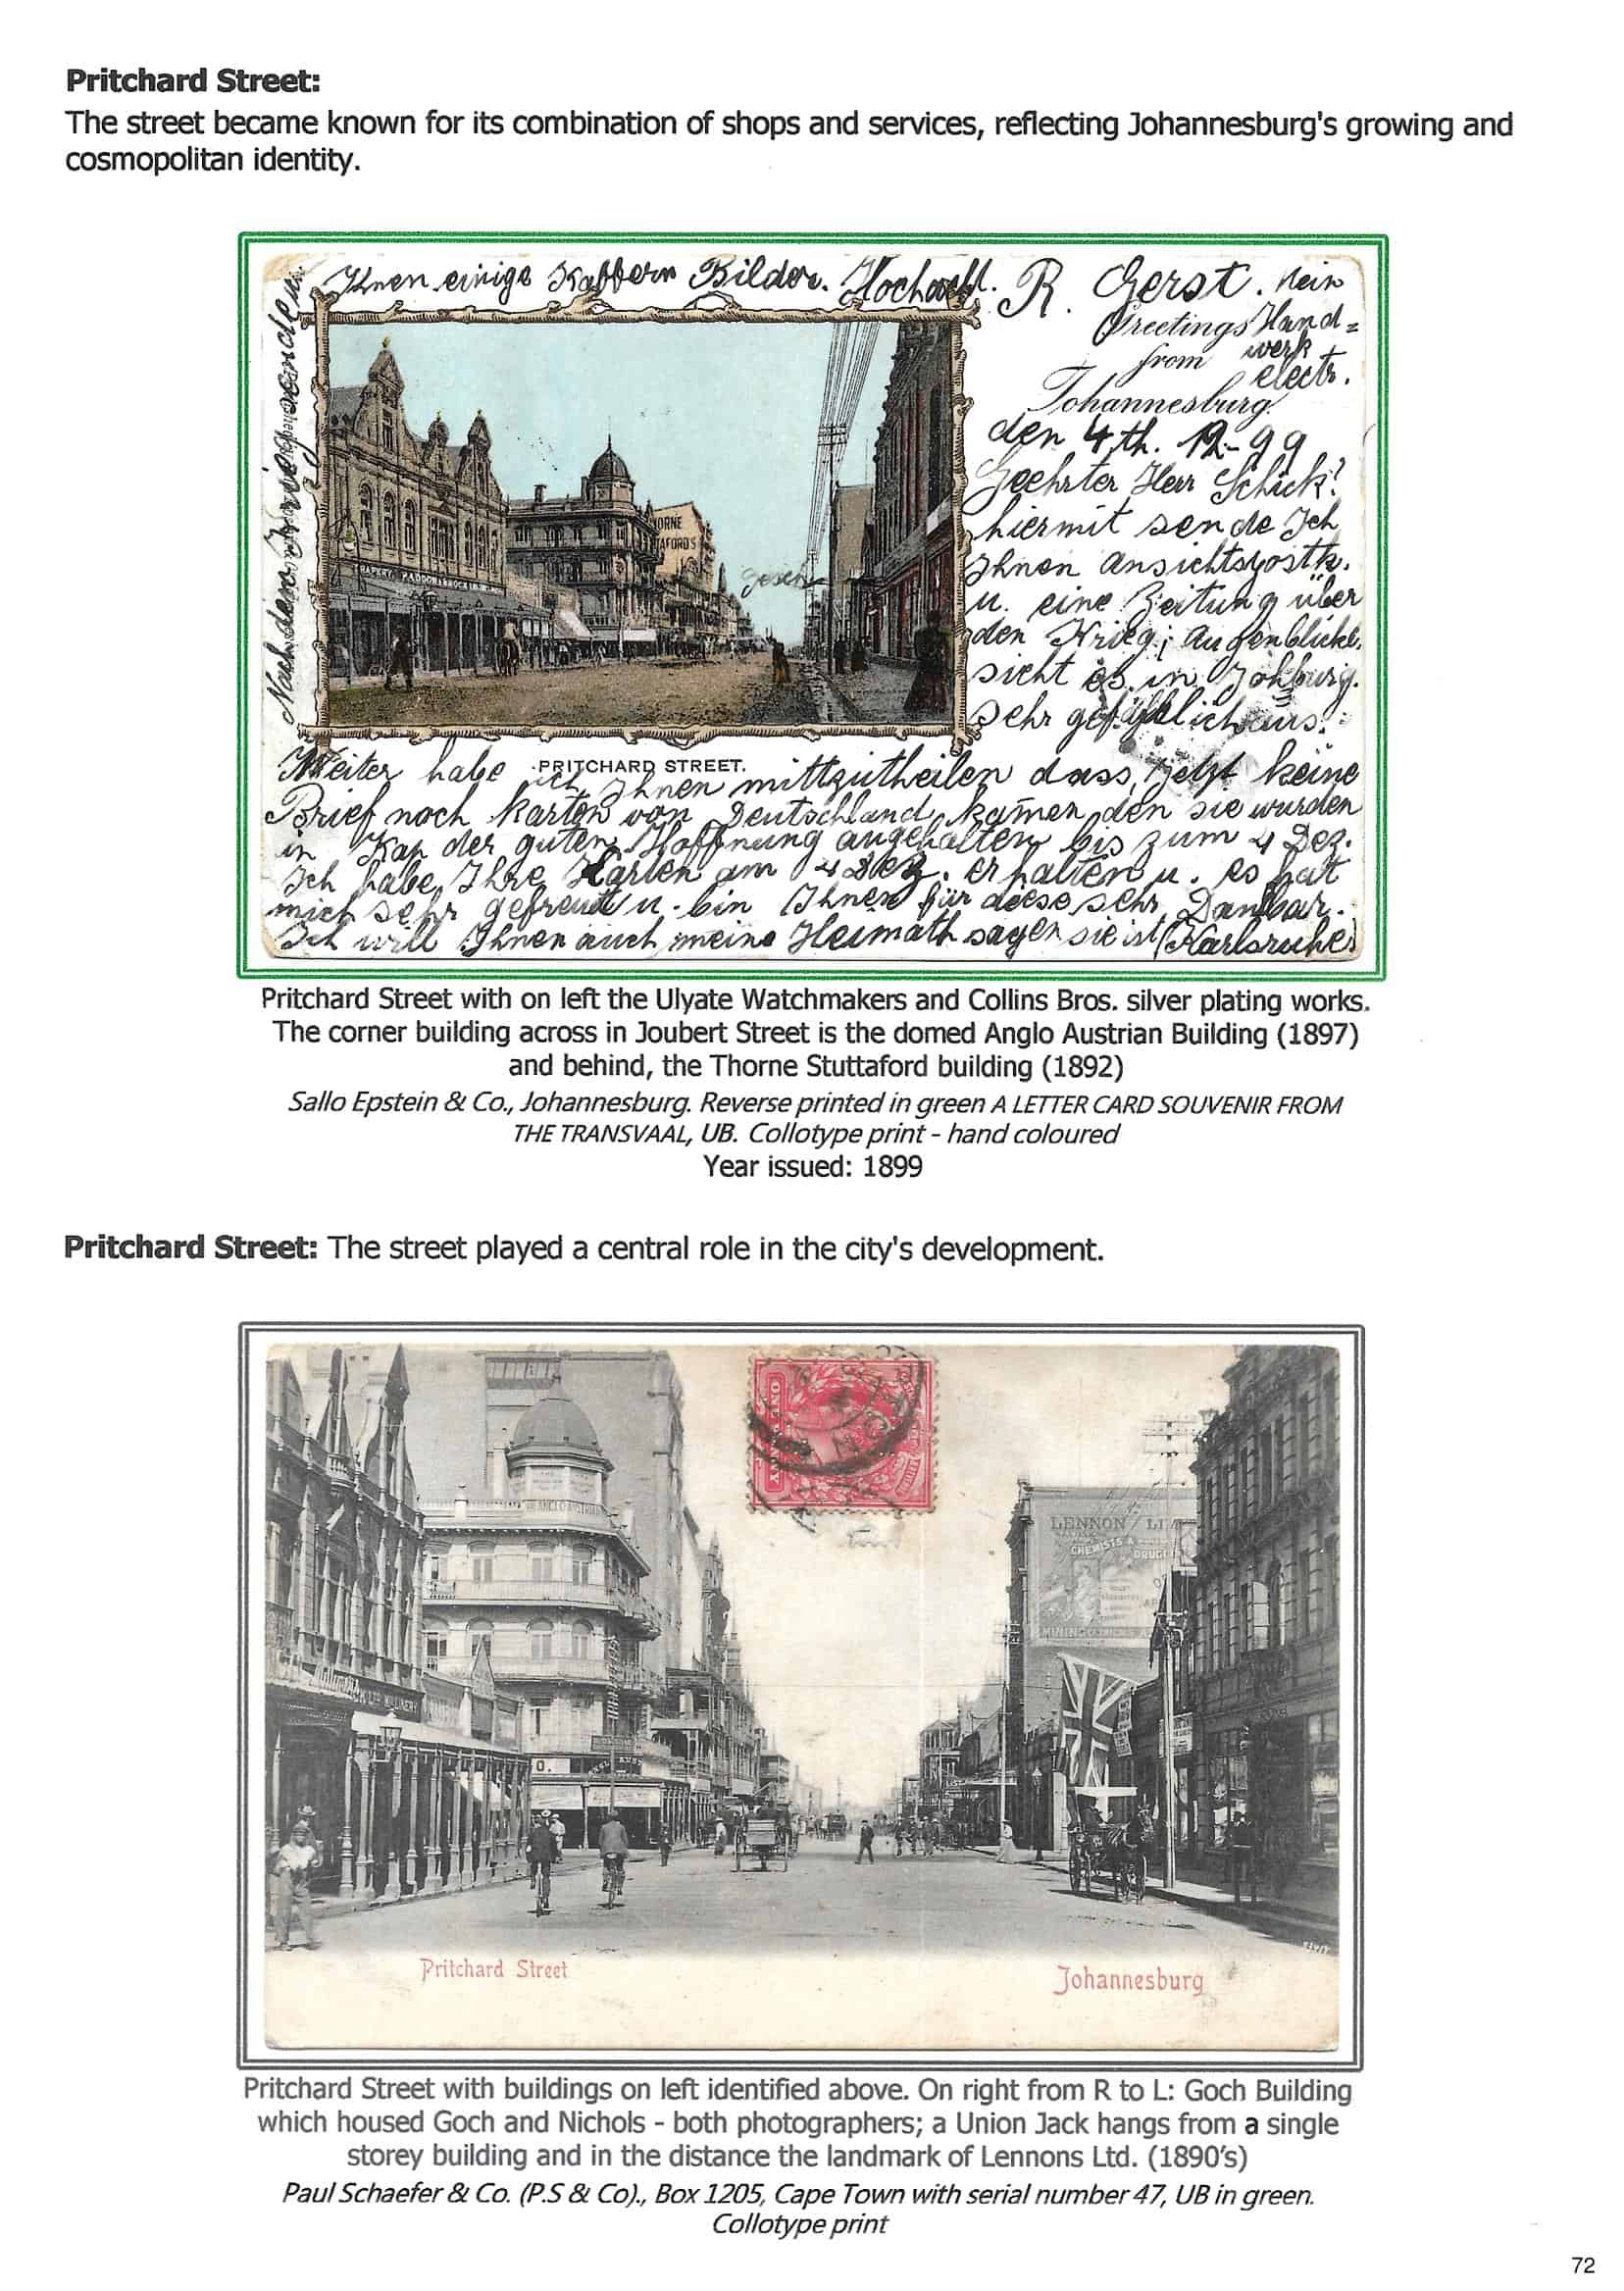 Pritchard Street:
The street became known for its combination of shops and services, reflecting Johannesburg's growing and
cosmopolitan identity.
Ihnen einige Kaffern Bilder. Hochacht. R. Gerst. Mein
Hand=
werk
electr.
Greetings
from
Johannesburg
den 4th. 12-99
Geehrter Herr Schick!
hiermit sende Ich
Ihnen Ansichtspostk.
u. eine Zeitung über
den Krieg; augenblickl.
sieht es in Johburg.
sehr gefährlich aus.
Nach dem Kriege sende
ORNE
AFORD'S
gesen
PRITCHARD STREET.
Weiter habe ich Ihnen mittzutheilen dass, jetzt keine
Brief noch Karten von Deutschland kamen den sie wurden
in Kap der guten Hoffnung angehalten bis zum 4 Dez.
Ich habe Ihre Karten am 4 Dez. erhalten u. es hat
mich sehr gefreut u. bin Ihnen für diese sehr Dankbar.
Ich will Ihnen auch meine Heimath sagen sie ist (Karlsruhe)
Pritchard Street with on left the Ulyate Watchmakers and Collins Bros. silver plating works.
The corner building across in Joubert Street is the domed Anglo Austrian Building (1897)
and behind, the Thorne Stuttaford building (1892)
Sallo Epstein & Co., Johannesburg. Reverse printed in green A LETTER CARD SOUVENIR FROM
THE TRANSVAAL, UB. Collotype print - hand coloured
Year issued: 1899
Pritchard Street: The street played a central role in the city's development.
LENNON LI
CHEMISTS &
DRUGG
Pritchard Street
Johannesburg
Pritchard Street with buildings on left identified above. On right from R to L: Goch Building
which housed Goch and Nichols - both photographers; a Union Jack hangs from a single
storey building and in the distance the landmark of Lennons Ltd. (1890's)
Paul Schaefer & Co. (P.S & Co)., Box 1205, Cape Town with serial number 47, UB in green.
Collotype print
72